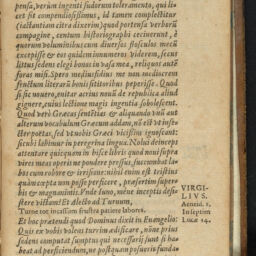 pensa, verùm ingenti sudorum toleramento, qui li-
cet sit compendiosissimus, id tamen complectitur
(iactantiam citra dixerim) quod portenta verborũ
compagine, centum historiographi cecinerunt, è
quorum voluminibus cum diuersos flosculos mecũ
excepisse & eos quidem innumeros viderem, secus
littus sedens elegi bonos in vasa mea, reliquos autē
foras misi. Spero mediusfidius me non mediocrem
fructum literarū bonis sititoribus peperisse. Quod
si sic nouero, nitar acrius noui de republica aliud
gignere, cuius lectione magis ingentia sobolescent.
Quod verò Græcas sententias & aliquando vnū aut
alterum vocabulum Græcum addam, nō est vt in se-
cter poetas, sed venuste Græci vicissim ignoscant:
sicubi labimur in peregrina lingua. Nolui deinceps
attentare quicquam in hisce libris quod noui supra
vires meas operi me pondere pressus, succumbat la-
bos cum robore & conamine: nihil enim est tristius
quàm cœpta non posse perficere, præsertim super-
bis & magnanimis. Vnde Iuno, méne incepto desi-
stere victam! Et Alecto ad Turnum,
Turne tot incassum fructra patiere labores.
Et hoc prætendi quod Dominus dixit in Euangelio:
Quis ex vobis volens turrim ædificare, nōne prius
sedens computat sumptus qui necessarij sunt si ha-
beat ad perficiendum, ne postquam posuerit funda-
VIRGI-
LIVS.
Aeneid. 1.
In septim
Lucæ 14.